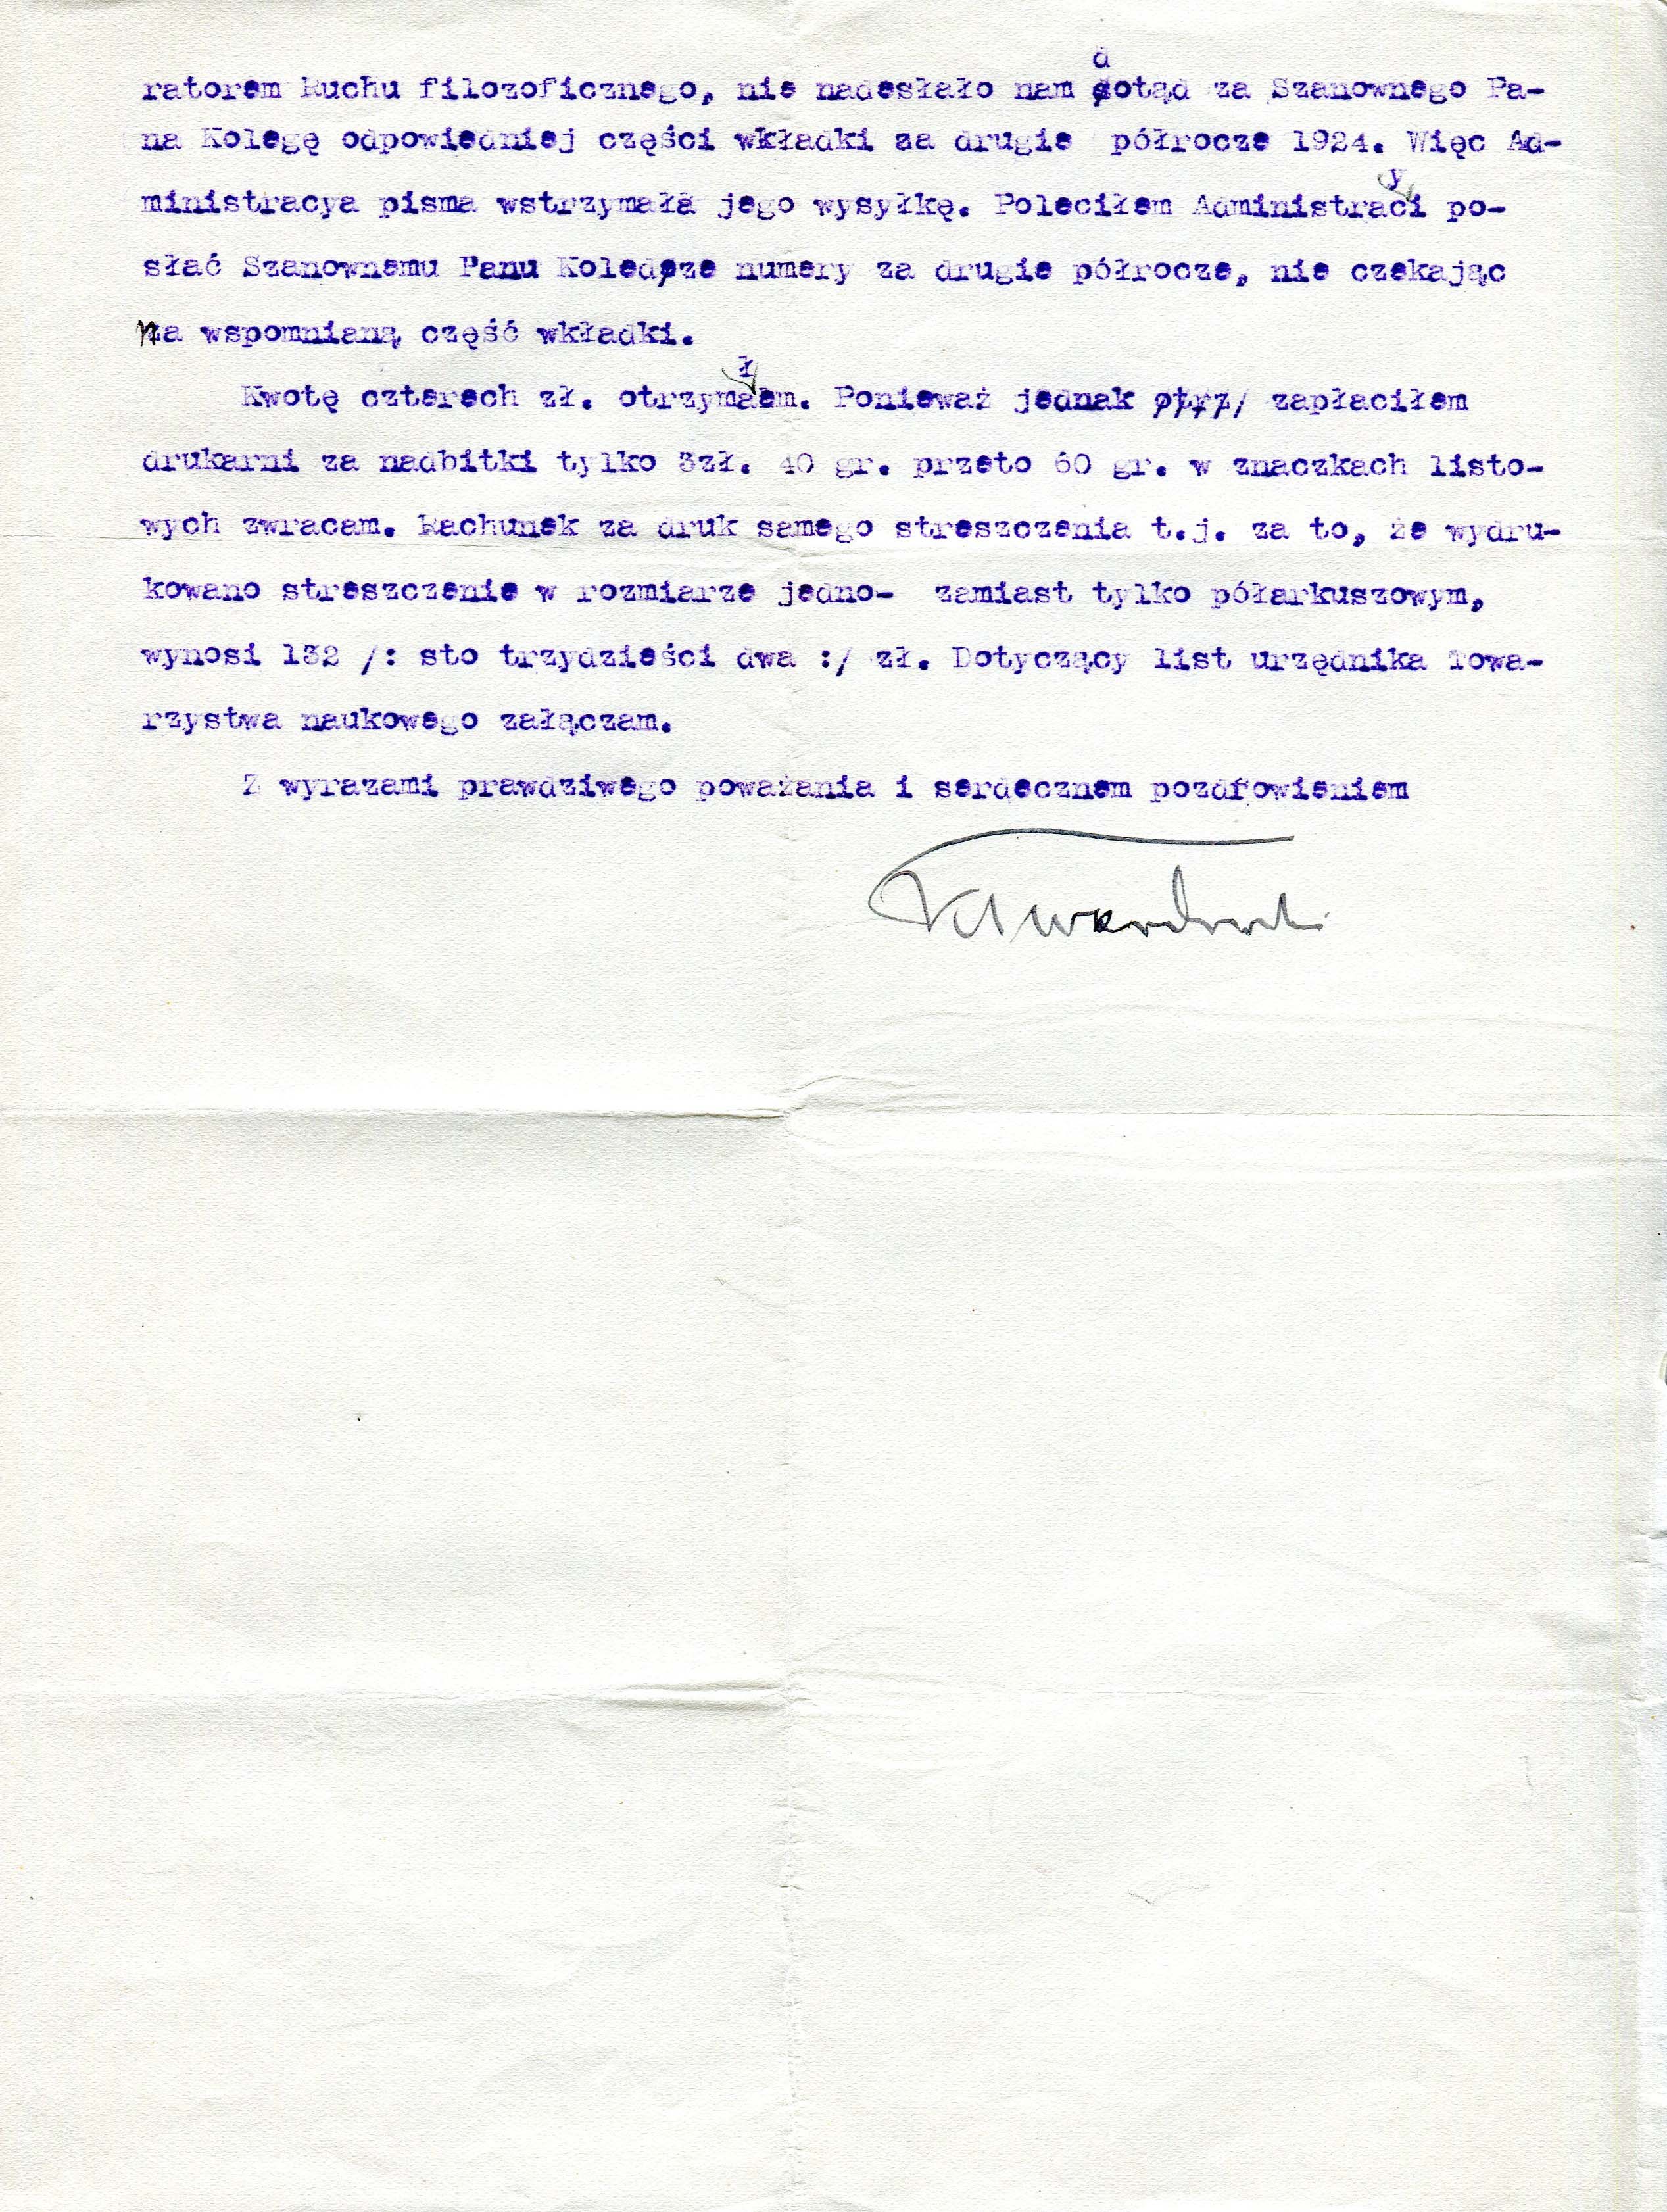 ratorem Ruchu filozoficznego, nie nadesłało nam dotąd za Szanownego Pa-
na Kolegę odpowiedniej części wkładki za drugie półrocze 1924. Więc Ad-
ministracya pisma wstrzymała jego wysyłkę. Poleciłem Administracyi po-
słać Szanownemu Panu Koledze numery za drugie półrocze, nie czekając
na wspomnianą część wkładki.
Kwotę czterech zł. otrzymałem. Ponieważ jednak otrz/ zapłaciłem
drukarni za nadbitki tylko 3zł. 40 gr. przeto 60 gr. w znaczkach listo-
wych zwracam. Rachunek za druk samego streszczenia t.j. za to, że wydru-
kowano streszczenie w rozmiarze jedno- zamiast tylko półarkuszowym,
wynosi 132 /: sto trzydzieści dwa :/ zł. Dotyczący list urzędnika Towa-
rzystwa naukowego załączam.
Z wyrazami prawdziwego poważania i serdecznem pozdrowieniem
KTwardowski